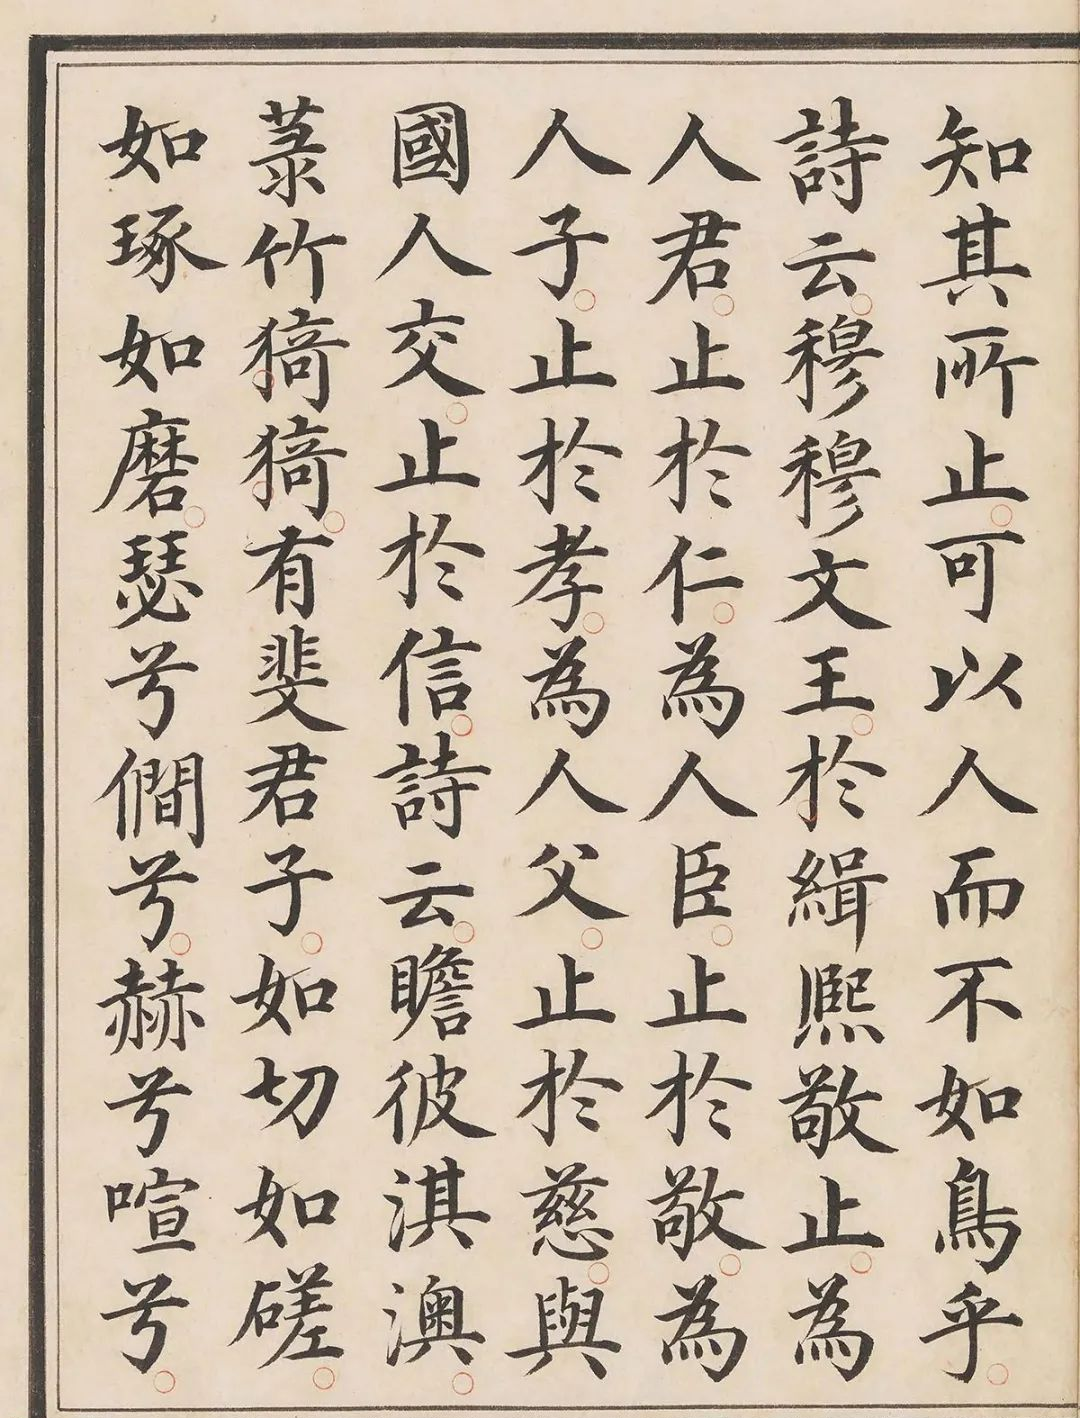 知其所止可以人而不如鳥乎
詩云穆穆文王於緝熙敬止為
人君止於仁為人臣止於敬為
人子止於孝為人父止於慈與
國人交止於信詩云瞻彼淇澳
菉竹猗猗有斐君子如切如磋
如琢如磨瑟兮僩兮赫兮喧兮